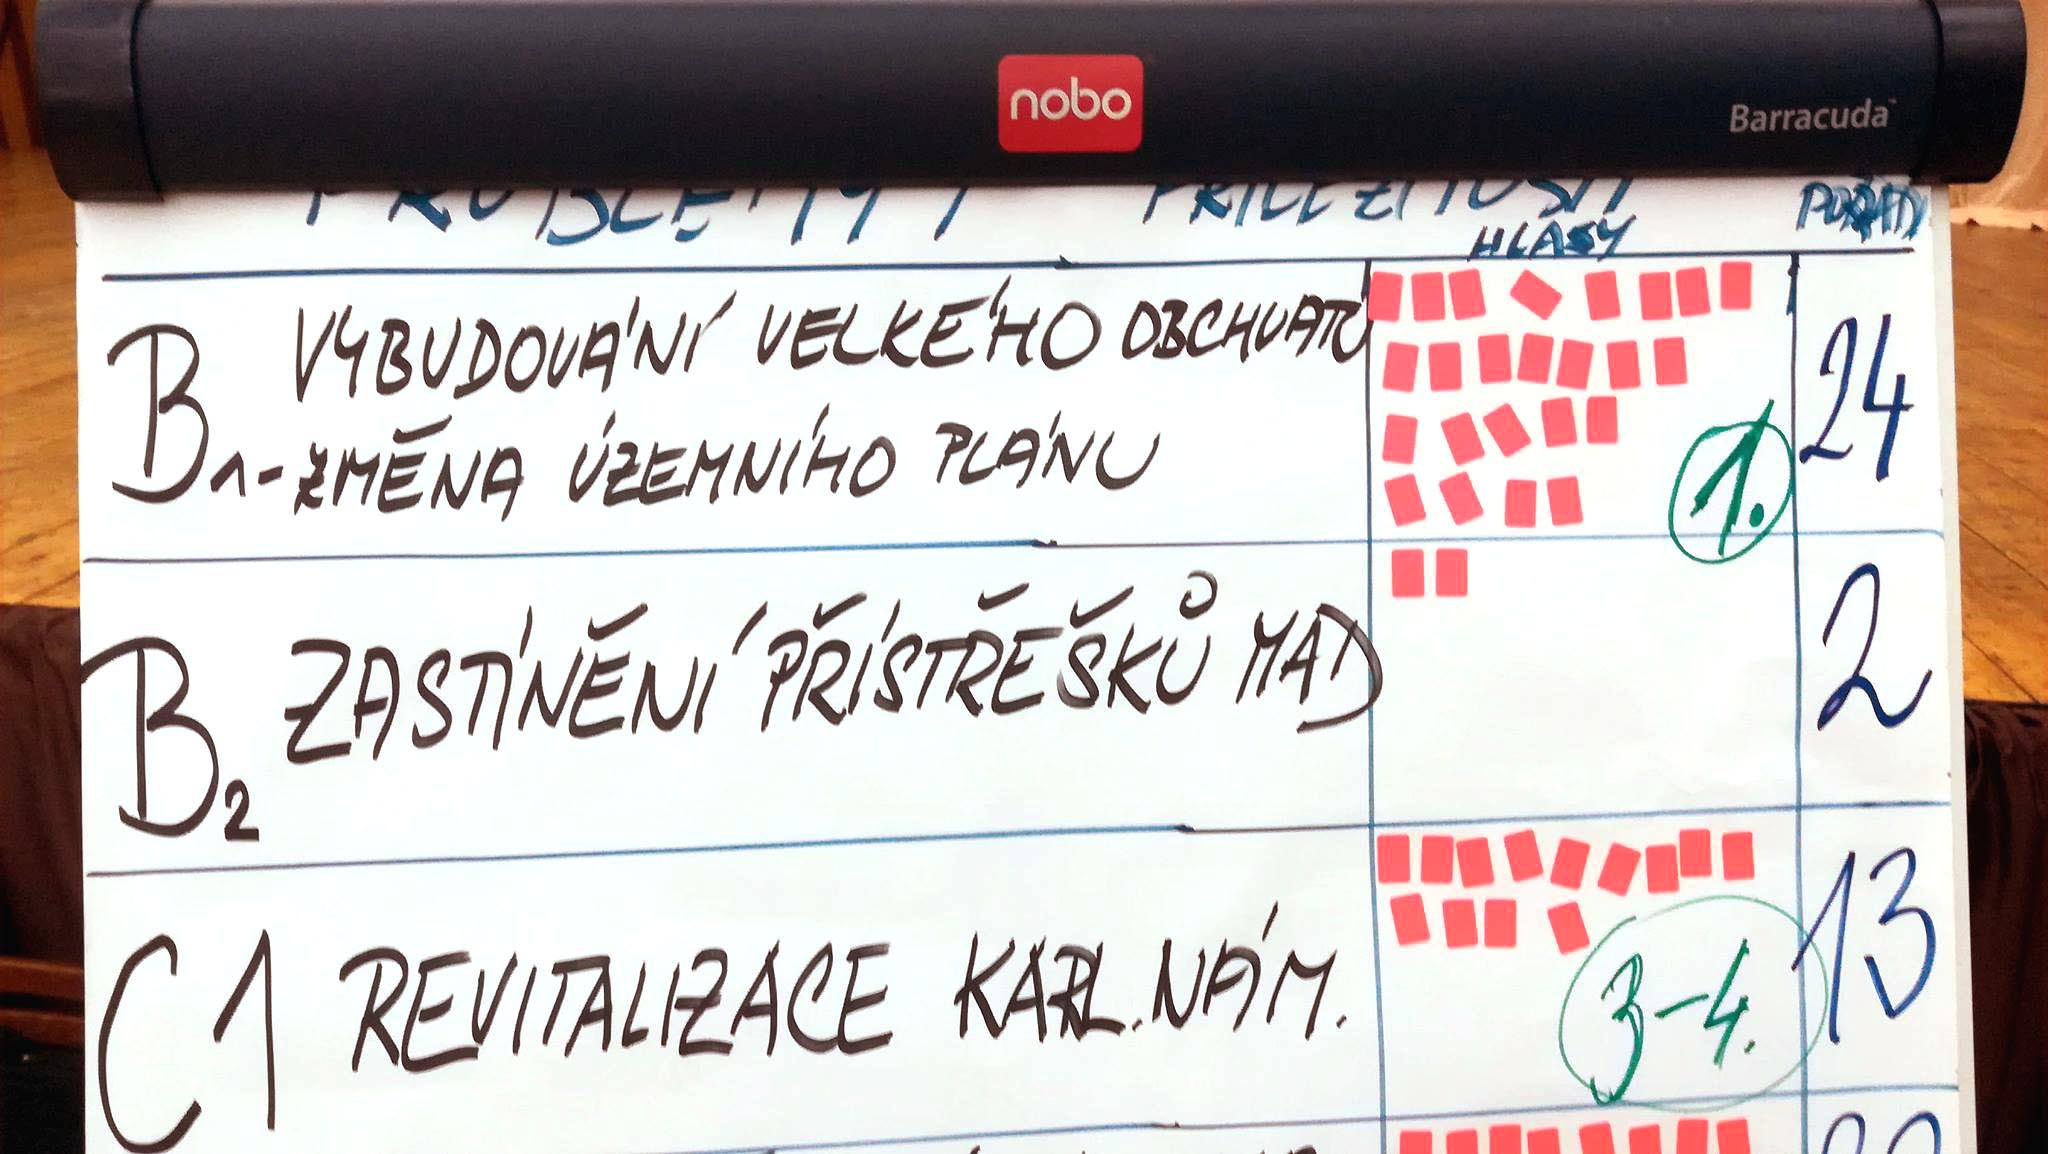 nobo
Barracuda
PROBLÉMY / PŘÍLEŽITOSTI
HLASY
B1 VYBUDOVÁNÍ VELKÉHO OBCHVATU
-ZMĚNA ÚZEMNÍHO PLÁNU
1.
24
B2 ZASTÍNĚNÍ PŘÍSTŘEŠKŮ MAD
2
C1 REVITALIZACE KARL. NÁM.
3-4.
13